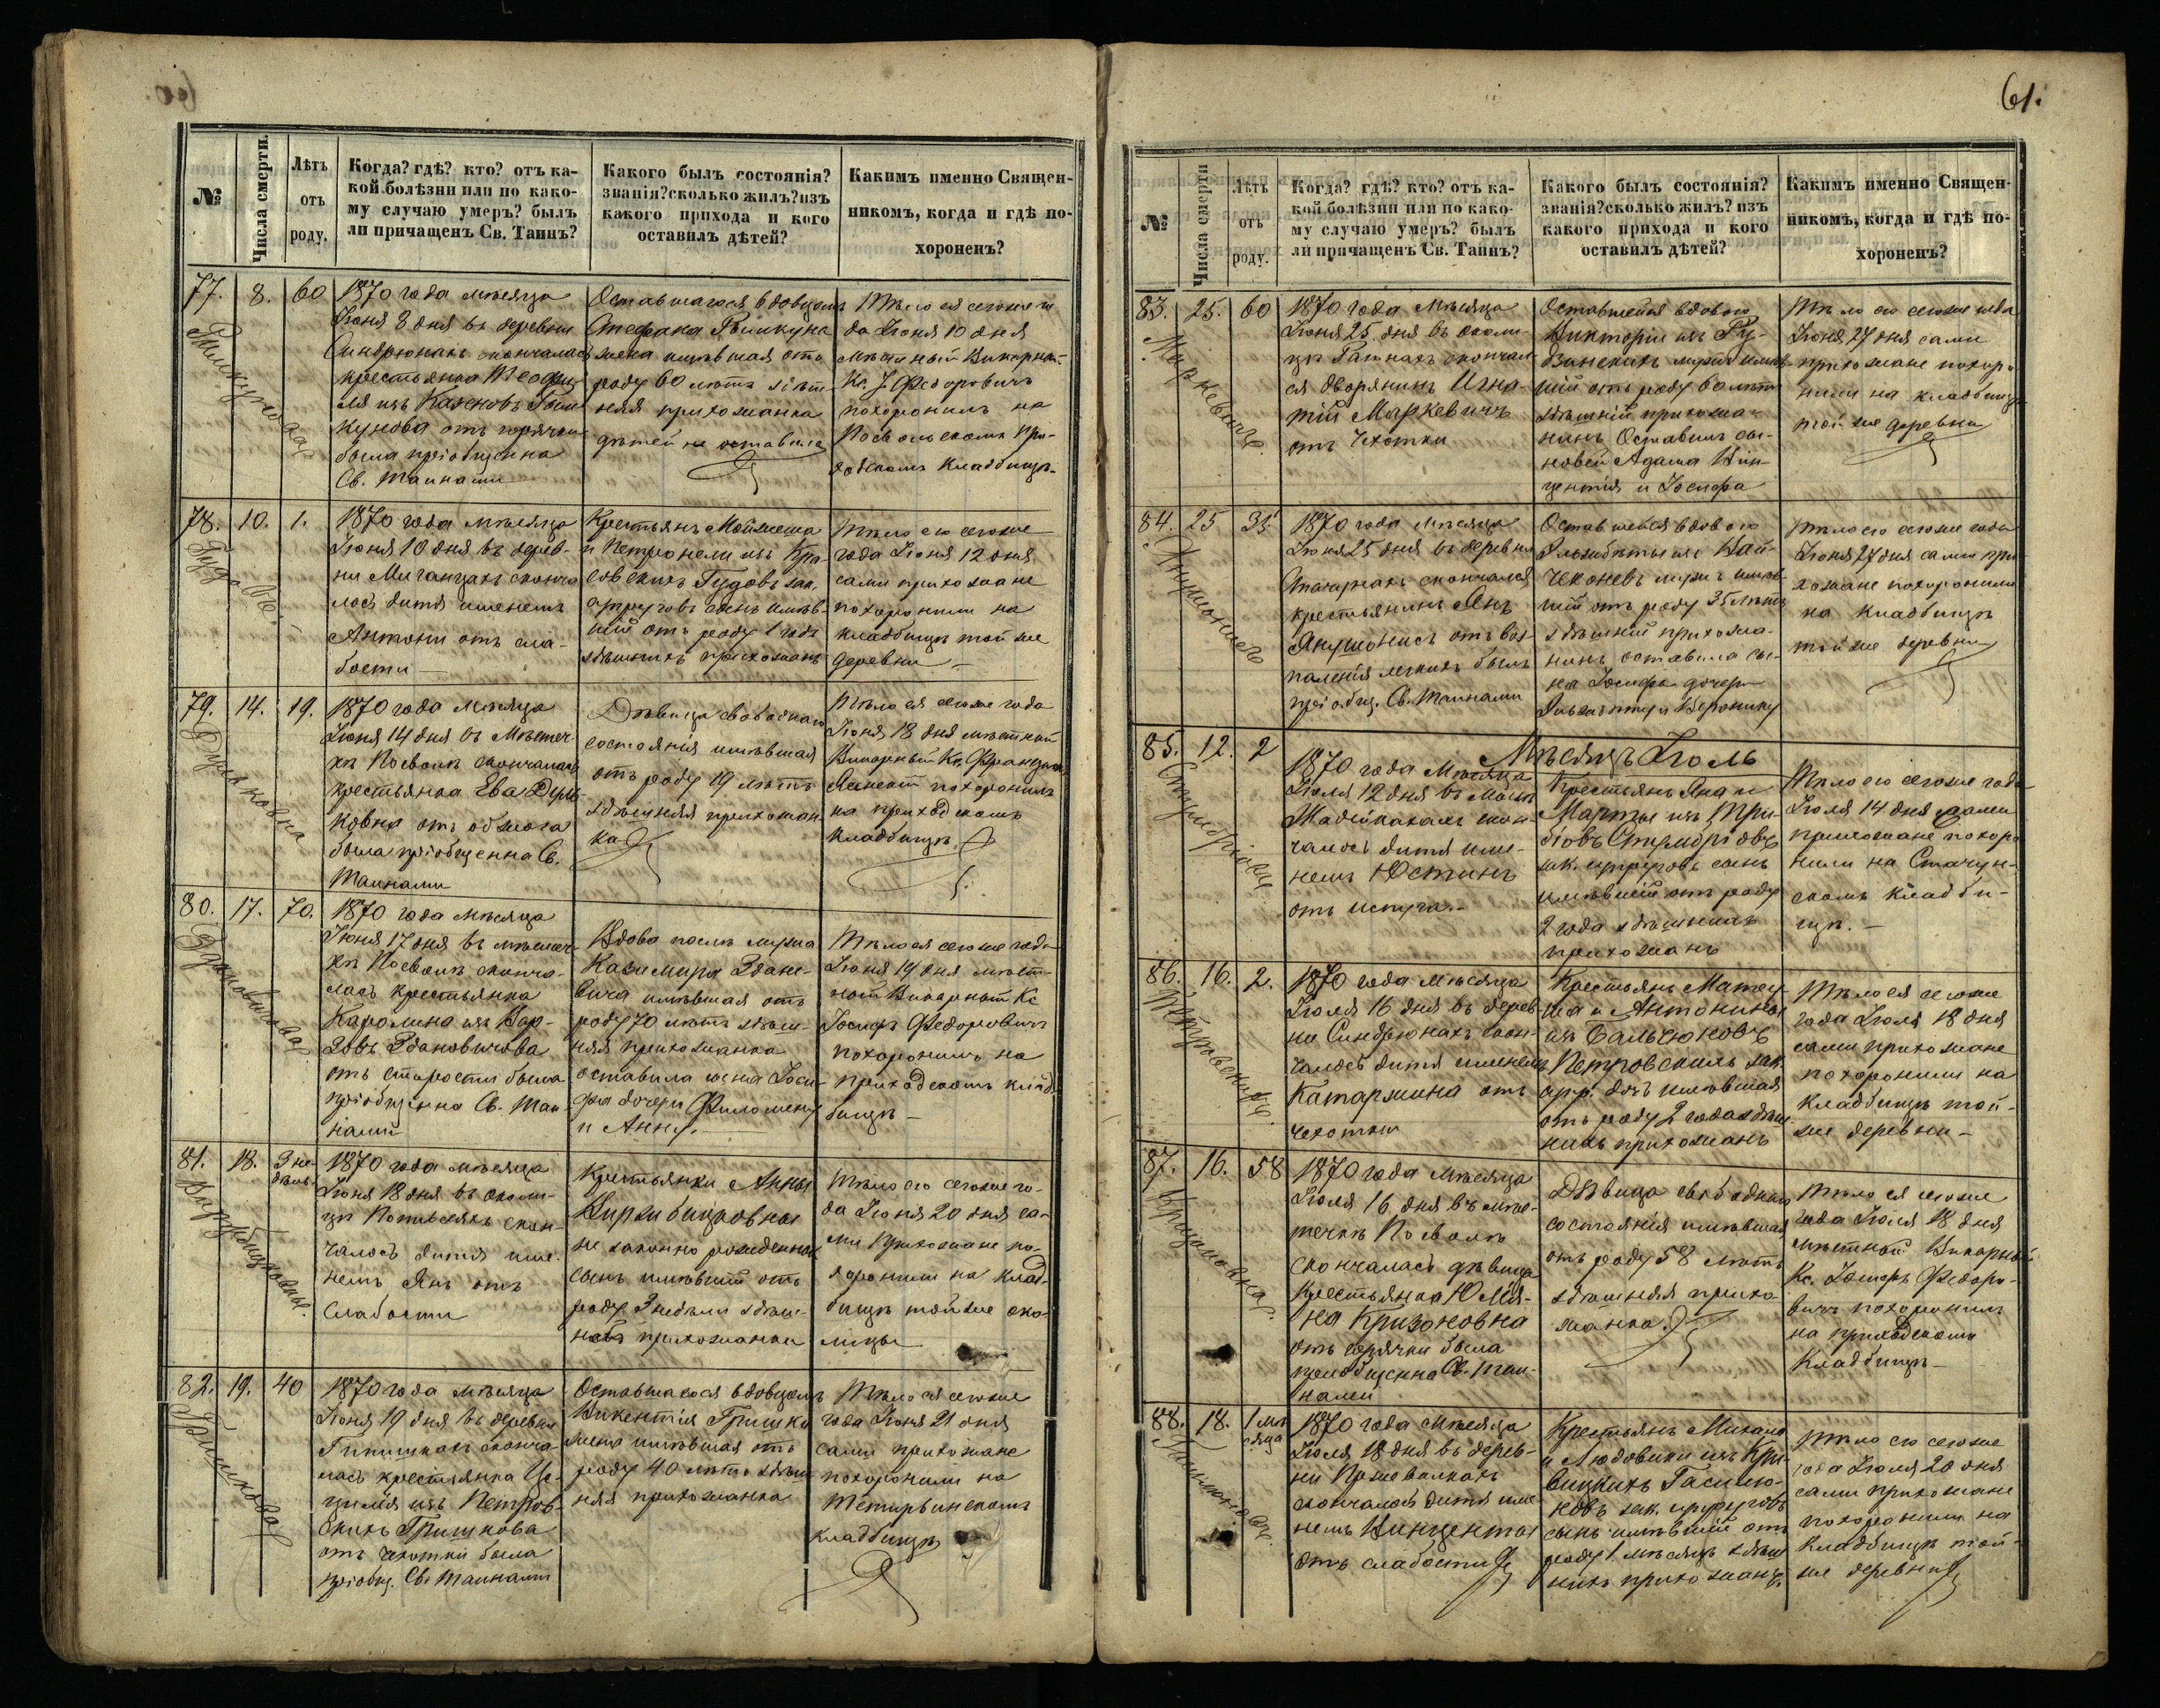 61.
№
Числа смерти.
Лѣтъ
отъ
роду.
Когда? гдѣ? кто? отъ ка-
кой болѣзни или по како-
му случаю умеръ? былъ
ли причащенъ Св. Таинъ?
Какого былъ состоянія?
званія? сколько жилъ? изъ
какого прихода и кого
оставилъ дѣтей?
Какимъ именно Священ-
никомъ, когда и гдѣ по-
хороненъ?
77.
8.
60
1870 года мѣсяца
Іюня 8 дня въ деревни
Синдрюнахъ скончалась
крестьянка
изъ
отъ горячки
была пріобщенна
Св. Таинами
Оставшагося вдовцемъ
Стефана Римкуна
жена имѣвшая отъ
роду 60 лѣтъ здѣш-
няя прихожанка
дѣтей не оставила
Тѣло ея сегоже го
да Іюня 10 дня
мѣстный Викарный
Кс. І. Федоровичъ
похоронилъ на
Посвольскомъ при-
ходскомъ кладбищѣ
78.
10.
1.
Гудовъ.
1870 года мѣсяца
Іюня 10 дня въ дерев-
ни сконча
лось дитя именемъ
Антони отъ сла-
бости
Крестьянъ Мойжеша
и Петронели изъ Кра
совскихъ Гудовъ зак.
супруговъ сынъ имѣв-
шій отъ роду 1 годъ
здѣшнихъ прихожанъ
Тѣло его сегоже
года Іюня 12 дня
сами прихожане
похоронили на
кладбищѣ той же
деревни
79.
14.
19.
1870 года мѣсяца
Іюня 14 дня въ Мѣстеч-
кѣ Посволѣ скончалась
крестьянка Ева Дуль-
ковна отъ обжога
была пріобщенна Св.
Таинами
Дѣвица свободнаго
состоянія имѣвшая
отъ роду 19 лѣтъ
здѣшняя прихожан
ка
Тѣло ея сегоже года
Іюня 18 дня мѣстный
Викарный Кс.
похоронилъ
на приходскомъ
кладбищѣ.
80.
17.
70.
Здановичова
1870 года мѣсяца
Іюня 17 дня въ мѣстеч-
кѣ Посволѣ сконча-
лась крестьянка
Каролина изъ
Здановичова
отъ старости была
пріобщенна Св. Таи
нами
Вдова послѣ мужа
Казимира Здано-
вича имѣвшая отъ
роду 70 лѣтъ здѣш-
няя прихожанка
оставила сына Іоси-
фа дочери Филомену
и Анну.
Тѣло ея сегоже года
Іюня 19 дня мѣст-
ный Викарный Кс
Іосифъ Федоровичъ
похоронилъ на
приходскомъ клад-
бищѣ
81.
18.
3 не-
дѣль
1870 года мѣсяца
Іюня 18 дня въ околи-
цѣ скон-
чалось дитя име-
немъ Янъ отъ
слабости
Крестьянки Анны
не законно рожденный
сынъ имѣвшій отъ
роду 3 недѣли здѣш-
ней прихожанки
Тѣло его сегоже го-
да Іюня 20 дня са-
ми прихожане по-
хоронили на клад-
бищѣ той же око-
лицы
82.
19.
40
Гришкова
1870 года мѣсяца
Іюня 19 дня въ деревни
сконча-
лась крестьянка Це-
цилія изъ Петров-
скихъ Гришкова
отъ чахотки была
пріобщ. Св. Таинами
Оставшагося вдовцемъ
Викентія Гришки
жена имѣвшая отъ
роду 40 лѣтъ здѣш
няя прихожанка
Тѣло ея сегоже
года Іюня 21 дня
сами прихожане
похоронили на
Тетирвинскомъ
кладбищѣ
№
Числа смерти
Лѣтъ
отъ
роду.
Когда? гдѣ? кто? отъ ка-
кой болѣзни или по како-
му случаю умеръ? былъ
ли причащенъ Св. Таинъ?
Какого былъ состоянія?
званія? сколько жилъ? изъ
какого прихода и кого
оставилъ дѣтей?
Какимъ именно Священ-
никомъ, когда и гдѣ по-
хороненъ?
83.
25.
60
Маркевичъ.
1870 года Мѣсяца
Іюня 25 дня въ околи-
цѣ скончал
ся дворянинъ Игна-
тій Маркевичъ
отъ чахотки
Оставшейся вдовою
Викторіи изъ Ру-
мужъ имѣв
шій отъ роду 60 лѣтъ
здѣшній прихожа-
нинъ Оставилъ сы-
новей Адама Вин-
центія и Іосифа
Тѣло его сегоже года
Іюня 27 дня сами
прихожане похоро
нили на кладбищѣ
той же деревни
84.
25
35
Янушонисъ
1870 года Мѣсяца
Іюня 25 дня въ деревни
скончался
крестьянинъ Янъ
Янушонисъ отъ вос-
паленія легкихъ былъ
пріобщ. Св. Таинами
Оставшейся вдовою
Эльжбеты изъ Вай-
мужъ имѣв-
шій отъ роду 35 лѣтъ
здѣшній прихожа-
нинъ оставилъ сы-
на Іосифа дочери
и Веронику
Тѣло его сегоже года
Іюня 27 дня сами при
хожане похоронили
на кладбищѣ
той же деревни
Мѣсяцъ Іюль
85.
12.
2
1870 года Мѣсяца
Іюля 12 дня въ
скон-
чалось дитя име-
немъ Юстинъ
отъ испуга.
Крестьянъ Яна и
Марты изъ
зак. супруговъ сынъ
имѣвшій отъ роду
2 года здѣшнихъ
прихожанъ
Тѣло его сегоже года
Іюля 14 дня сами
прихожане похоро
нили на Стачун-
скомъ кладби-
щѣ.
86.
16.
2.
1870 года Мѣсяца
Іюля 16 дня въ дерев
ни Синдрюнахъ скон-
чалось дитя именемъ
Катаржина отъ
чахотки
Крестьянъ Матеу
ша и Антонины
изъ
Петровскихъ зак.
супр. дочь имѣвшая
отъ роду 2 года здѣш
нихъ прихожанъ
Тѣло ея сегоже
года Іюля 18 дня
сами прихожане
похоронили на
кладбищѣ той-
же деревни
87.
16.
58
1870 года мѣсяца
Іюля 16 дня въ мѣс-
течкѣ Посволѣ
скончалась дѣвица
крестьянка Юлія-
на
отъ горячки была
пріобщенна Св. Таи-
нами
Дѣвица свободнаго
состоянія имѣвшая
отъ роду 58 лѣтъ
здѣшняя прихо
жанка.
Тѣло ея сегоже
года Іюля 18 дня
мѣстный Викарный
Кс. Іосифъ Федоро-
вичъ похоронилъ
на приходскомъ
кладбищѣ
88.
18.
1 мѣ
сяца
1870 года Мѣсяца
Іюля 18 дня въ дерев-
ни
скончалось дитя име-
немъ Винценты
отъ слабости
Крестьянъ Михала
и Людовики изъ
зак. супруговъ
сынъ имѣвшій отъ
роду 1 мѣсяцъ здѣш
нихъ прихожанъ
Тѣло его сегоже
года Іюля 20 дня
сами прихожане
похоронили на
кладбищѣ той-
же деревни